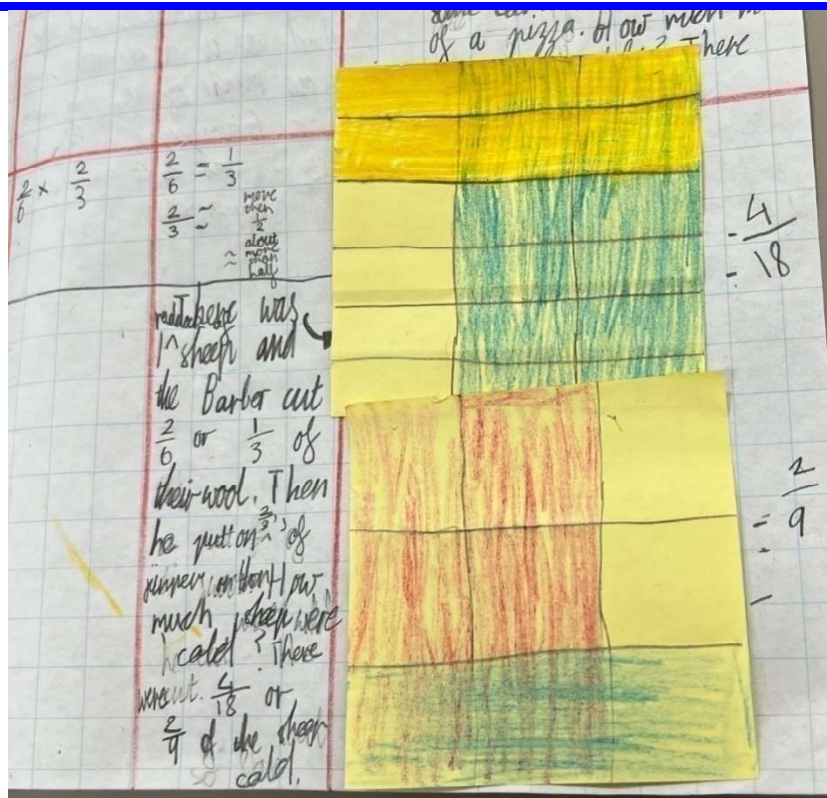 of a pizza. How much
There
2/6 × 2/3
2/6 = 1/3
2/3 ≈ more
then
1/2
≈ about
more
than
half
There was
1 sheep and
the Barber cut
2/6 or 1/3 of
their wool. Then
he putt on 2/3 of
How
much sheep were
cald? There
4/18 or
2/9 of the sheep
cald.
= 4/18
= 2/9